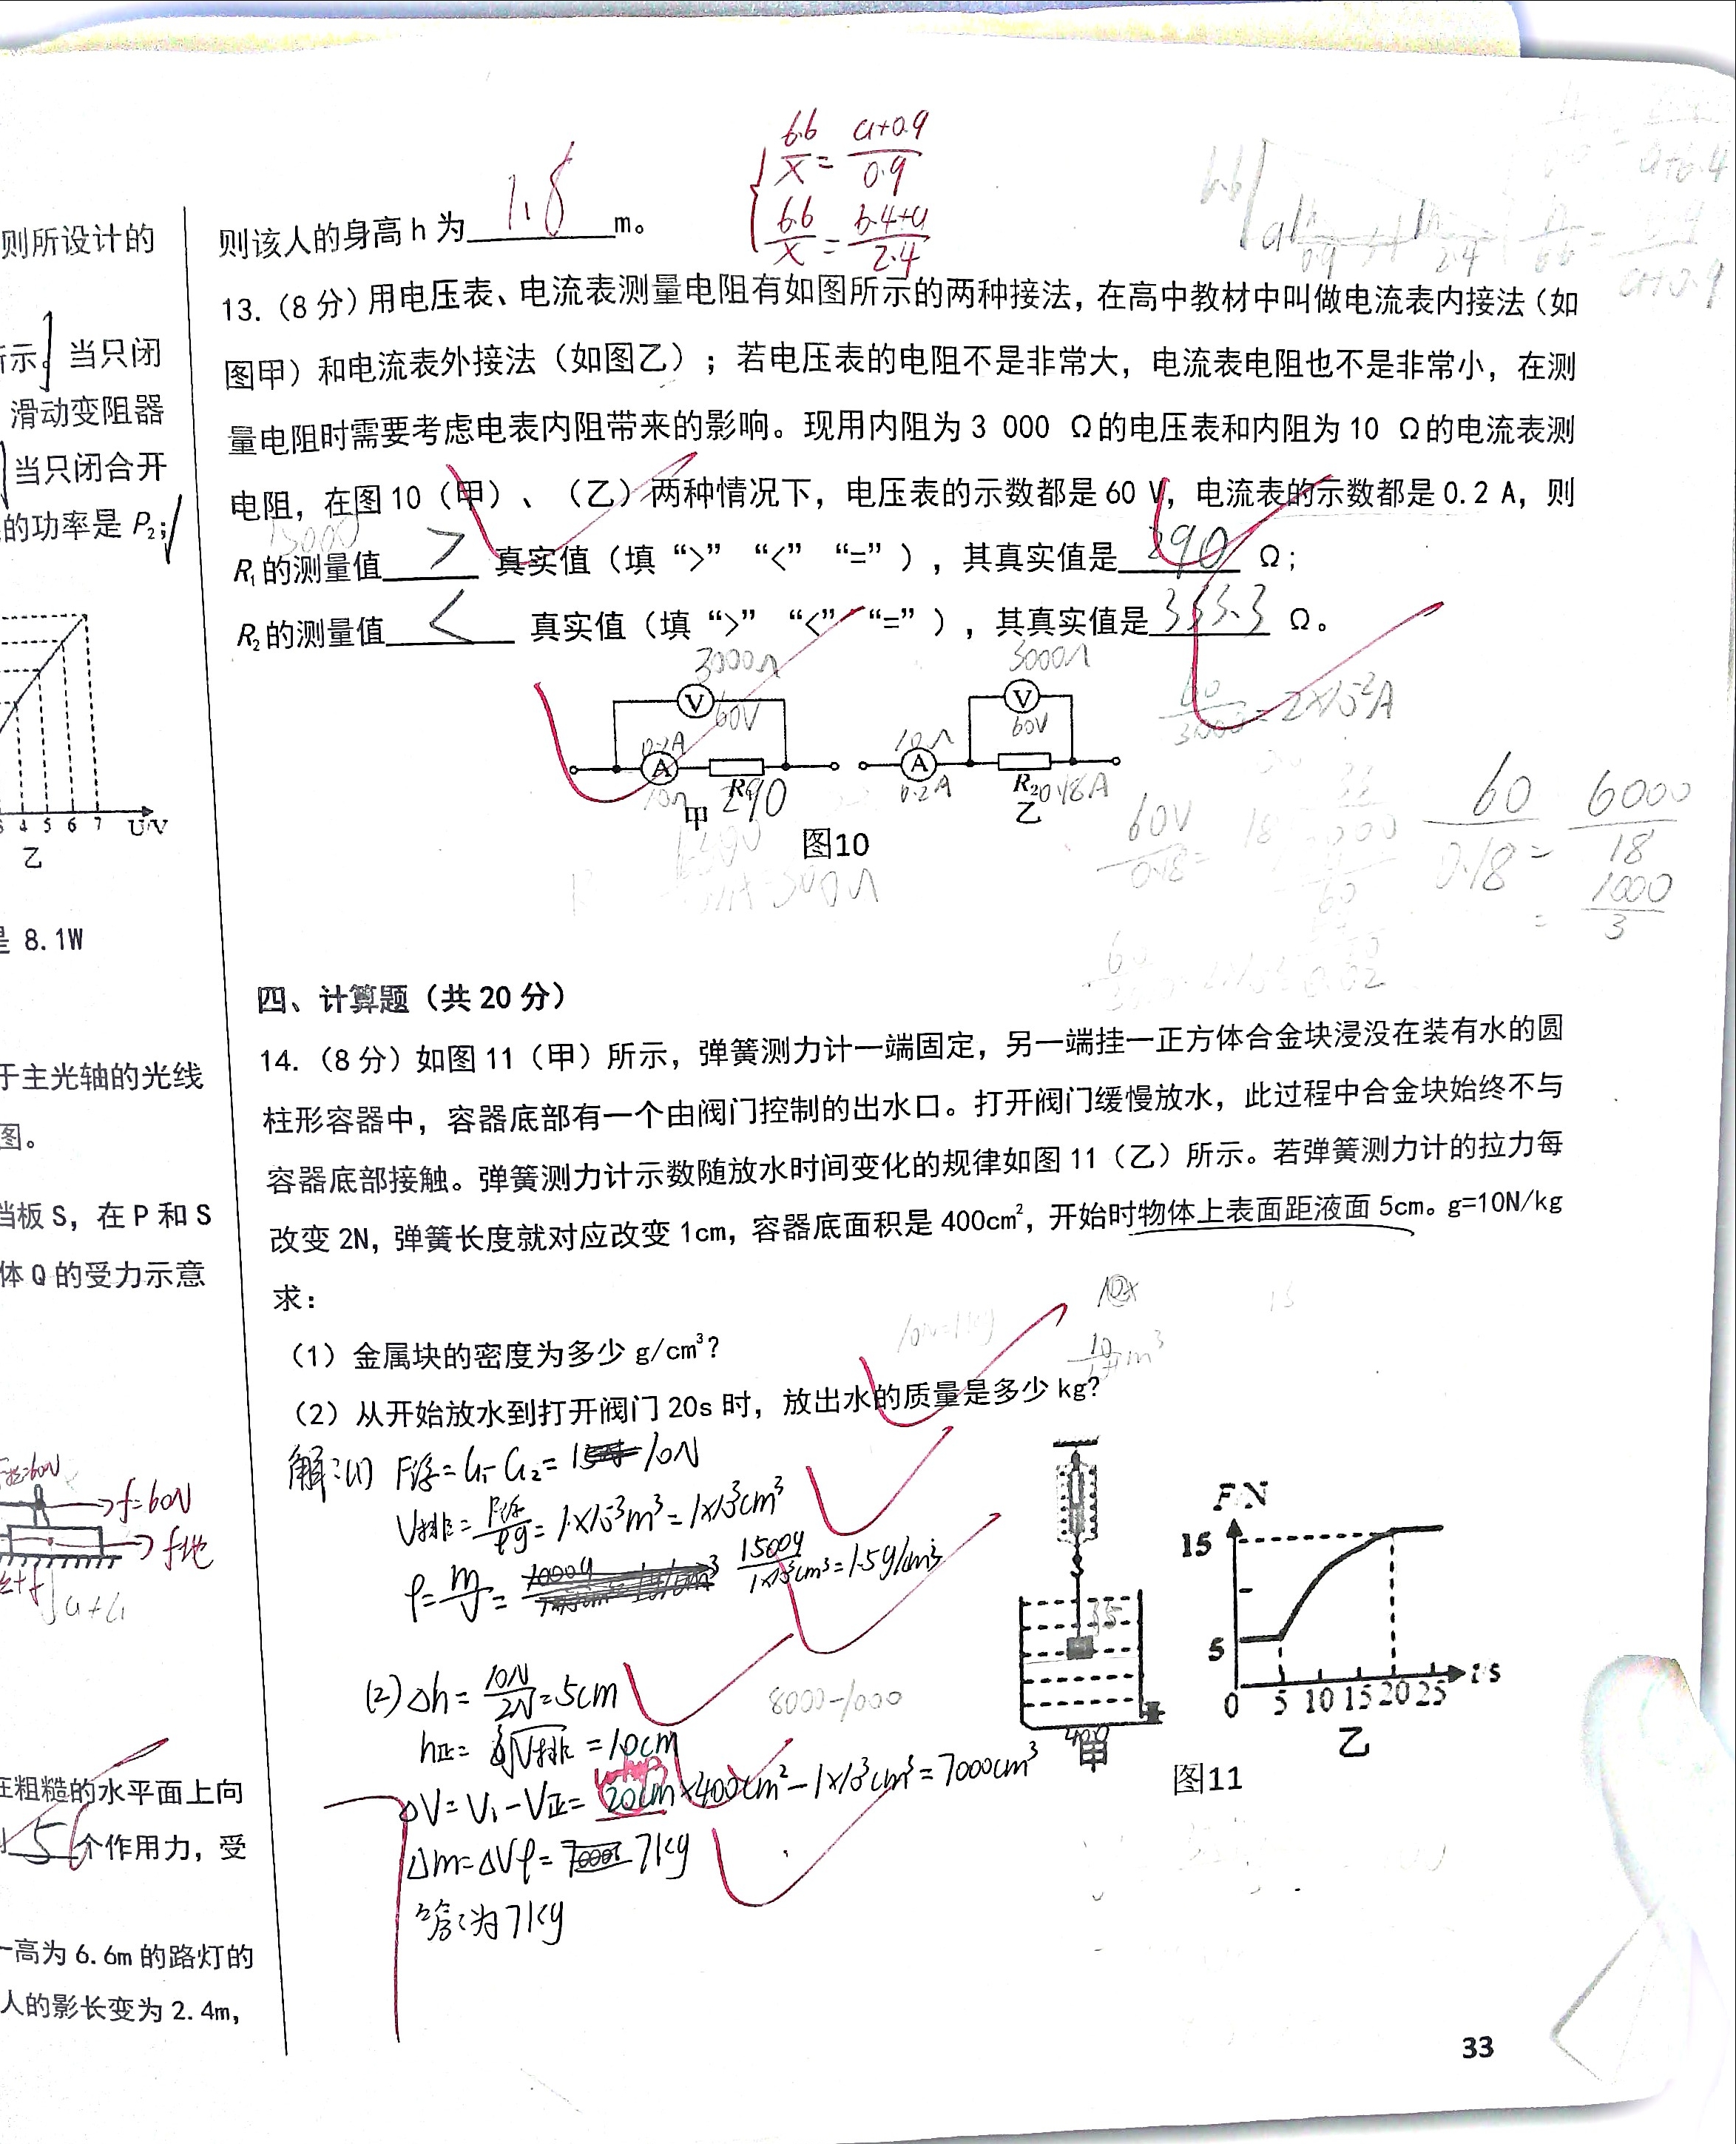 则所设计的
示。当只闭
滑动变阻器
当只闭合开
的功率是 P₂;
4 5 6 7 U/V
乙
是 8.1W
于主光轴的光线
图。
挡板 S，在 P 和 S
体 Q 的受力示意
f=60N
f地
在粗糙的水平面上向
5 个作用力，受
一高为 6.6m 的路灯的
人的影长变为 2.4m，
则该人的身高 h 为 1.8 m。
6.6/x = (a+0.9)/0.9
6.6/x = (2.4+a)/2.4
13.（8 分）用电压表、电流表测量电阻有如图所示的两种接法，在高中教材中叫做电流表内接法（如
图甲）和电流表外接法（如图乙）；若电压表的电阻不是非常大，电流表电阻也不是非常小，在测
量电阻时需要考虑电表内阻带来的影响。现用内阻为 3 000 Ω的电压表和内阻为 10 Ω的电流表测
电阻，在图 10（甲）、（乙）两种情况下，电压表的示数都是 60 V，电流表的示数都是 0.2 A，则
R₁的测量值 > 真实值（填“>” “<” “=”），其真实值是 290 Ω；
R₂的测量值 < 真实值（填“>” “<” “=”），其真实值是 333.3 Ω。
3000Ω 3000Ω
V V
60V 60V
60/3000 = 2×10⁻²A
0.2A 10Ω
A A
10Ω R₁ 290 0.2A R₂ 0.18A
甲 乙
图10
60V/0.18 =
60/0.18 = 6000/18
= 1000/3
四、计算题（共 20 分）
14.（8 分）如图 11（甲）所示，弹簧测力计一端固定，另一端挂一正方体合金块浸没在装有水的圆
柱形容器中，容器底部有一个由阀门控制的出水口。打开阀门缓慢放水，此过程中合金块始终不与
容器底部接触。弹簧测力计示数随放水时间变化的规律如图 11（乙）所示。若弹簧测力计的拉力每
改变 2N，弹簧长度就对应改变 1cm，容器底面积是 400cm²，开始时物体上表面距液面 5cm。g=10N/kg
求：
（1）金属块的密度为多少 g/cm³？
（2）从开始放水到打开阀门 20s 时，放出水的质量是多少 kg？
解：(1) F浮=G₁-G₂= 10N
V排=F浮/ρg=1×10⁻³m³=1×10³cm³
ρ=m/V= 1500g/1×10³cm³=1.5g/cm³
(2) Δh=10N/2N=5cm
8000-1000
h正=∛V排=10cm
ΔV=V₁-V正=20cm×400cm²-1×10³cm³=7000cm³
Δm=ΔVρ= 7kg
答：为7kg
400
甲
F/N
15
5
0 5 10 15 20 25 t/s
乙
图11
33